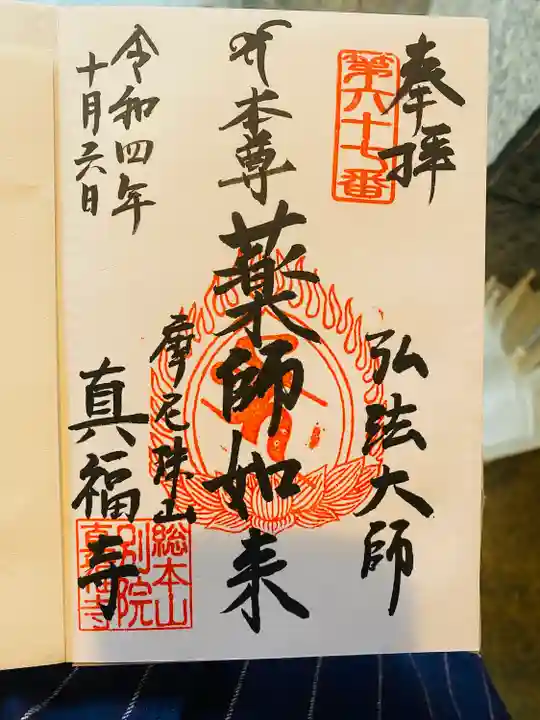 奉拝
第六十七番
弘法大師
本尊
薬師如来
摩尼珠山
真福寺
総本山
別院
真福寺
令和四年
十月六日